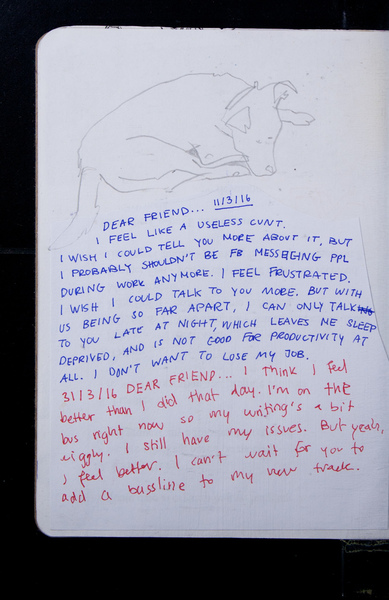 DEAR FRIEND... 11/3/16
I FEEL LIKE A USELESS CUNT.
I WISH I COULD TELL YOU MORE ABOUT IT, BUT
I PROBABLY SHOULDN'T BE FB MESSEGING PPL
DURING WORK ANYMORE. I FEEL FRUSTRATED.
I WISH I COULD TALK TO YOU MORE. BUT WITH
US BEING SO FAR APART, I CAN ONLY TALK
TO YOU LATE AT NIGHT, WHICH LEAVES ME SLEEP
DEPRIVED, AND IS NOT GOOD FOR PRODUCTIVITY AT
ALL. I DON'T WANT TO LOSE MY JOB.
31/3/16 DEAR FRIEND... I think I feel
better than I did that day. I'm on the
bus right now so my writing's a bit
wiggly. I still have my issues. But yeah,
I feel better. I can't wait for you to
add a bassline to my new track.